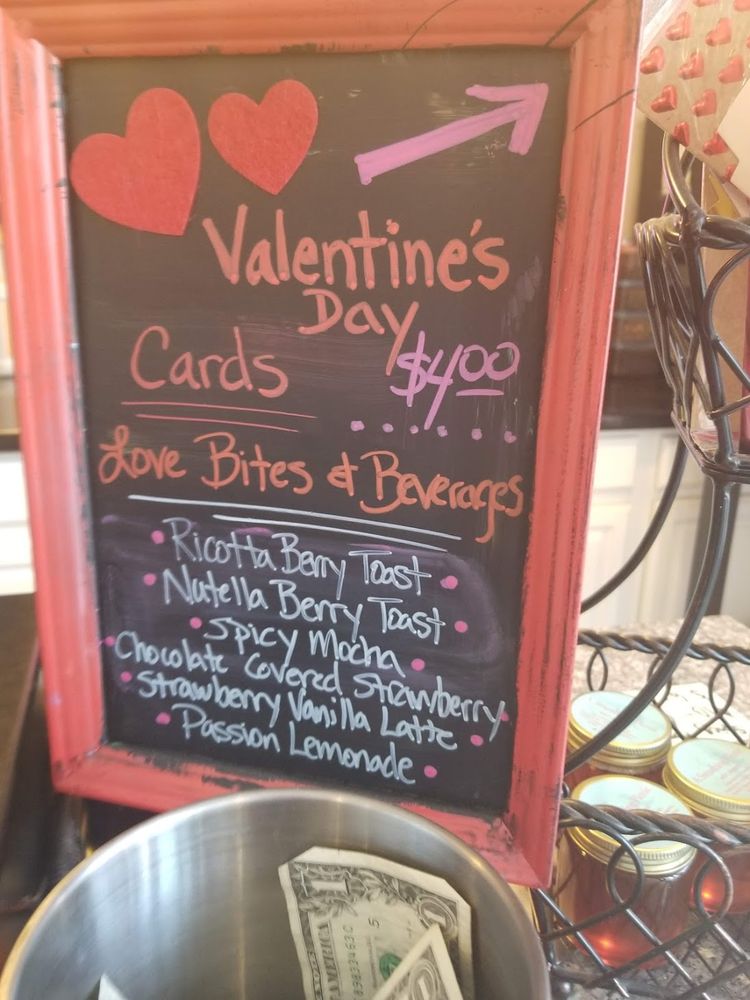 Valentine's
Day
Cards $4.00
Love Bites & Beverages
Ricotta Berry Toast
Nutella Berry Toast
Spicy Mocha
Chocolate Covered Strawberry
Strawberry Vanilla Latte
Passion Lemonade
1
AMERICA
5